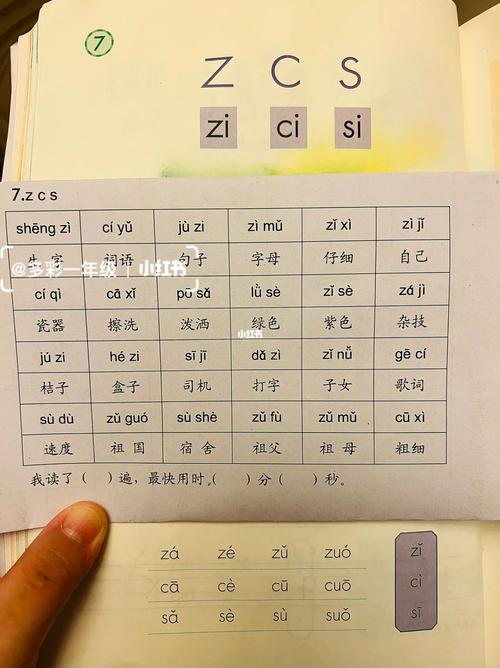 7
z c s
zi ci si
7.z c s
shēng zì cí yǔ jù zi zì mǔ zǐ xì zì jǐ
生字 词语 句子 字母 仔细 自己
@多彩一年级 小红书
cí qì cā xǐ pō sǎ lǜ sè zǐ sè zá jì
瓷器 擦洗 泼洒 绿色 紫色 杂技
小红书
jú zi hé zi sī jī dǎ zì zǐ nǚ gē cí
桔子 盒子 司机 打字 子女 歌词
sù dù zǔ guó sù shè zǔ fù zǔ mǔ cū xì
速度 祖国 宿舍 祖父 祖母 粗细
我读了( )遍，最快用时( )分( )秒。
zá zé zǔ zuó zǐ
cā cè cū cuō cì
sǎ sè sù suǒ sī